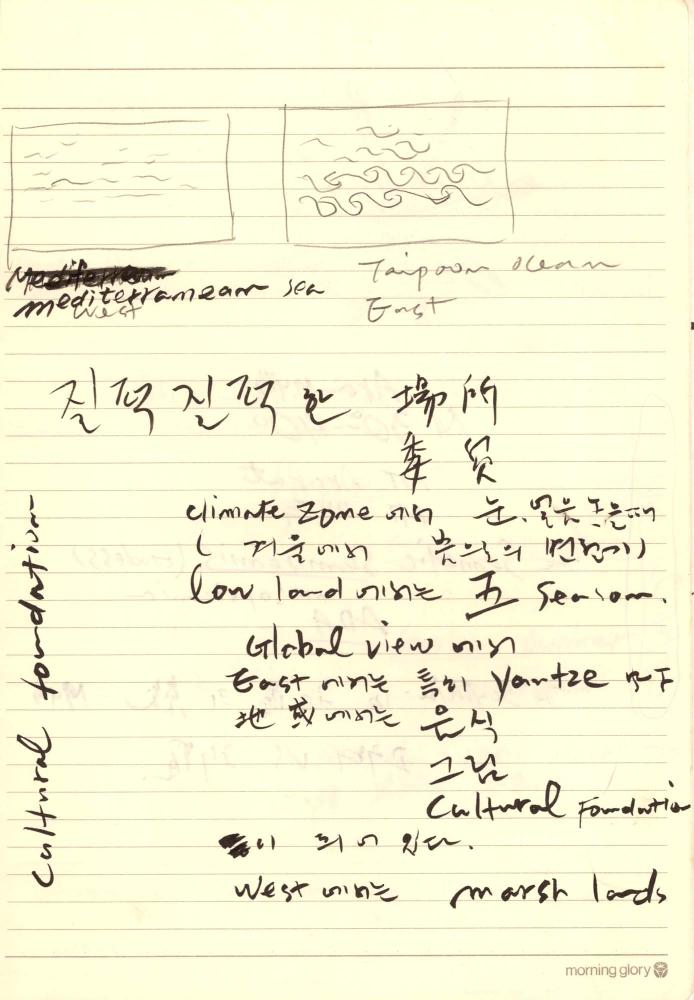 mediterranean sea
West
Taipoon Ocean
East
질적질적 한 場所
climate zone 에서 눈, 얼음 녹을때
( 겨울에서 봄으로의 변환기)
low land 에서는 五 Season.
Global view 에서
East 에서는 특히 Yantze
地域에서는 음식
그림
Cultural Foundation
이 되어 있다.
West 에서는 marsh lands
Cultural foundation
morning glory